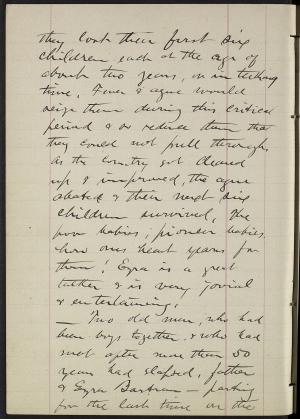 they lost their first six
children, each at the age of
about two years, or in teething
time, Fever & ague would
seize them during this critical
period & so reduce them that
they could not pull through.
As the country got cleared
up & improved, the ague
abated & their next six
children survived. The
poor babies; pioneer babies,
how ones heart yearns for
them! Ezra is a great
talker & is very jovial
& entertaining.
— Two old men, who had
been boys together, & who had
met after more than 50
years had elapsed, father
& Ezra Bartram — parting
for the last time on the